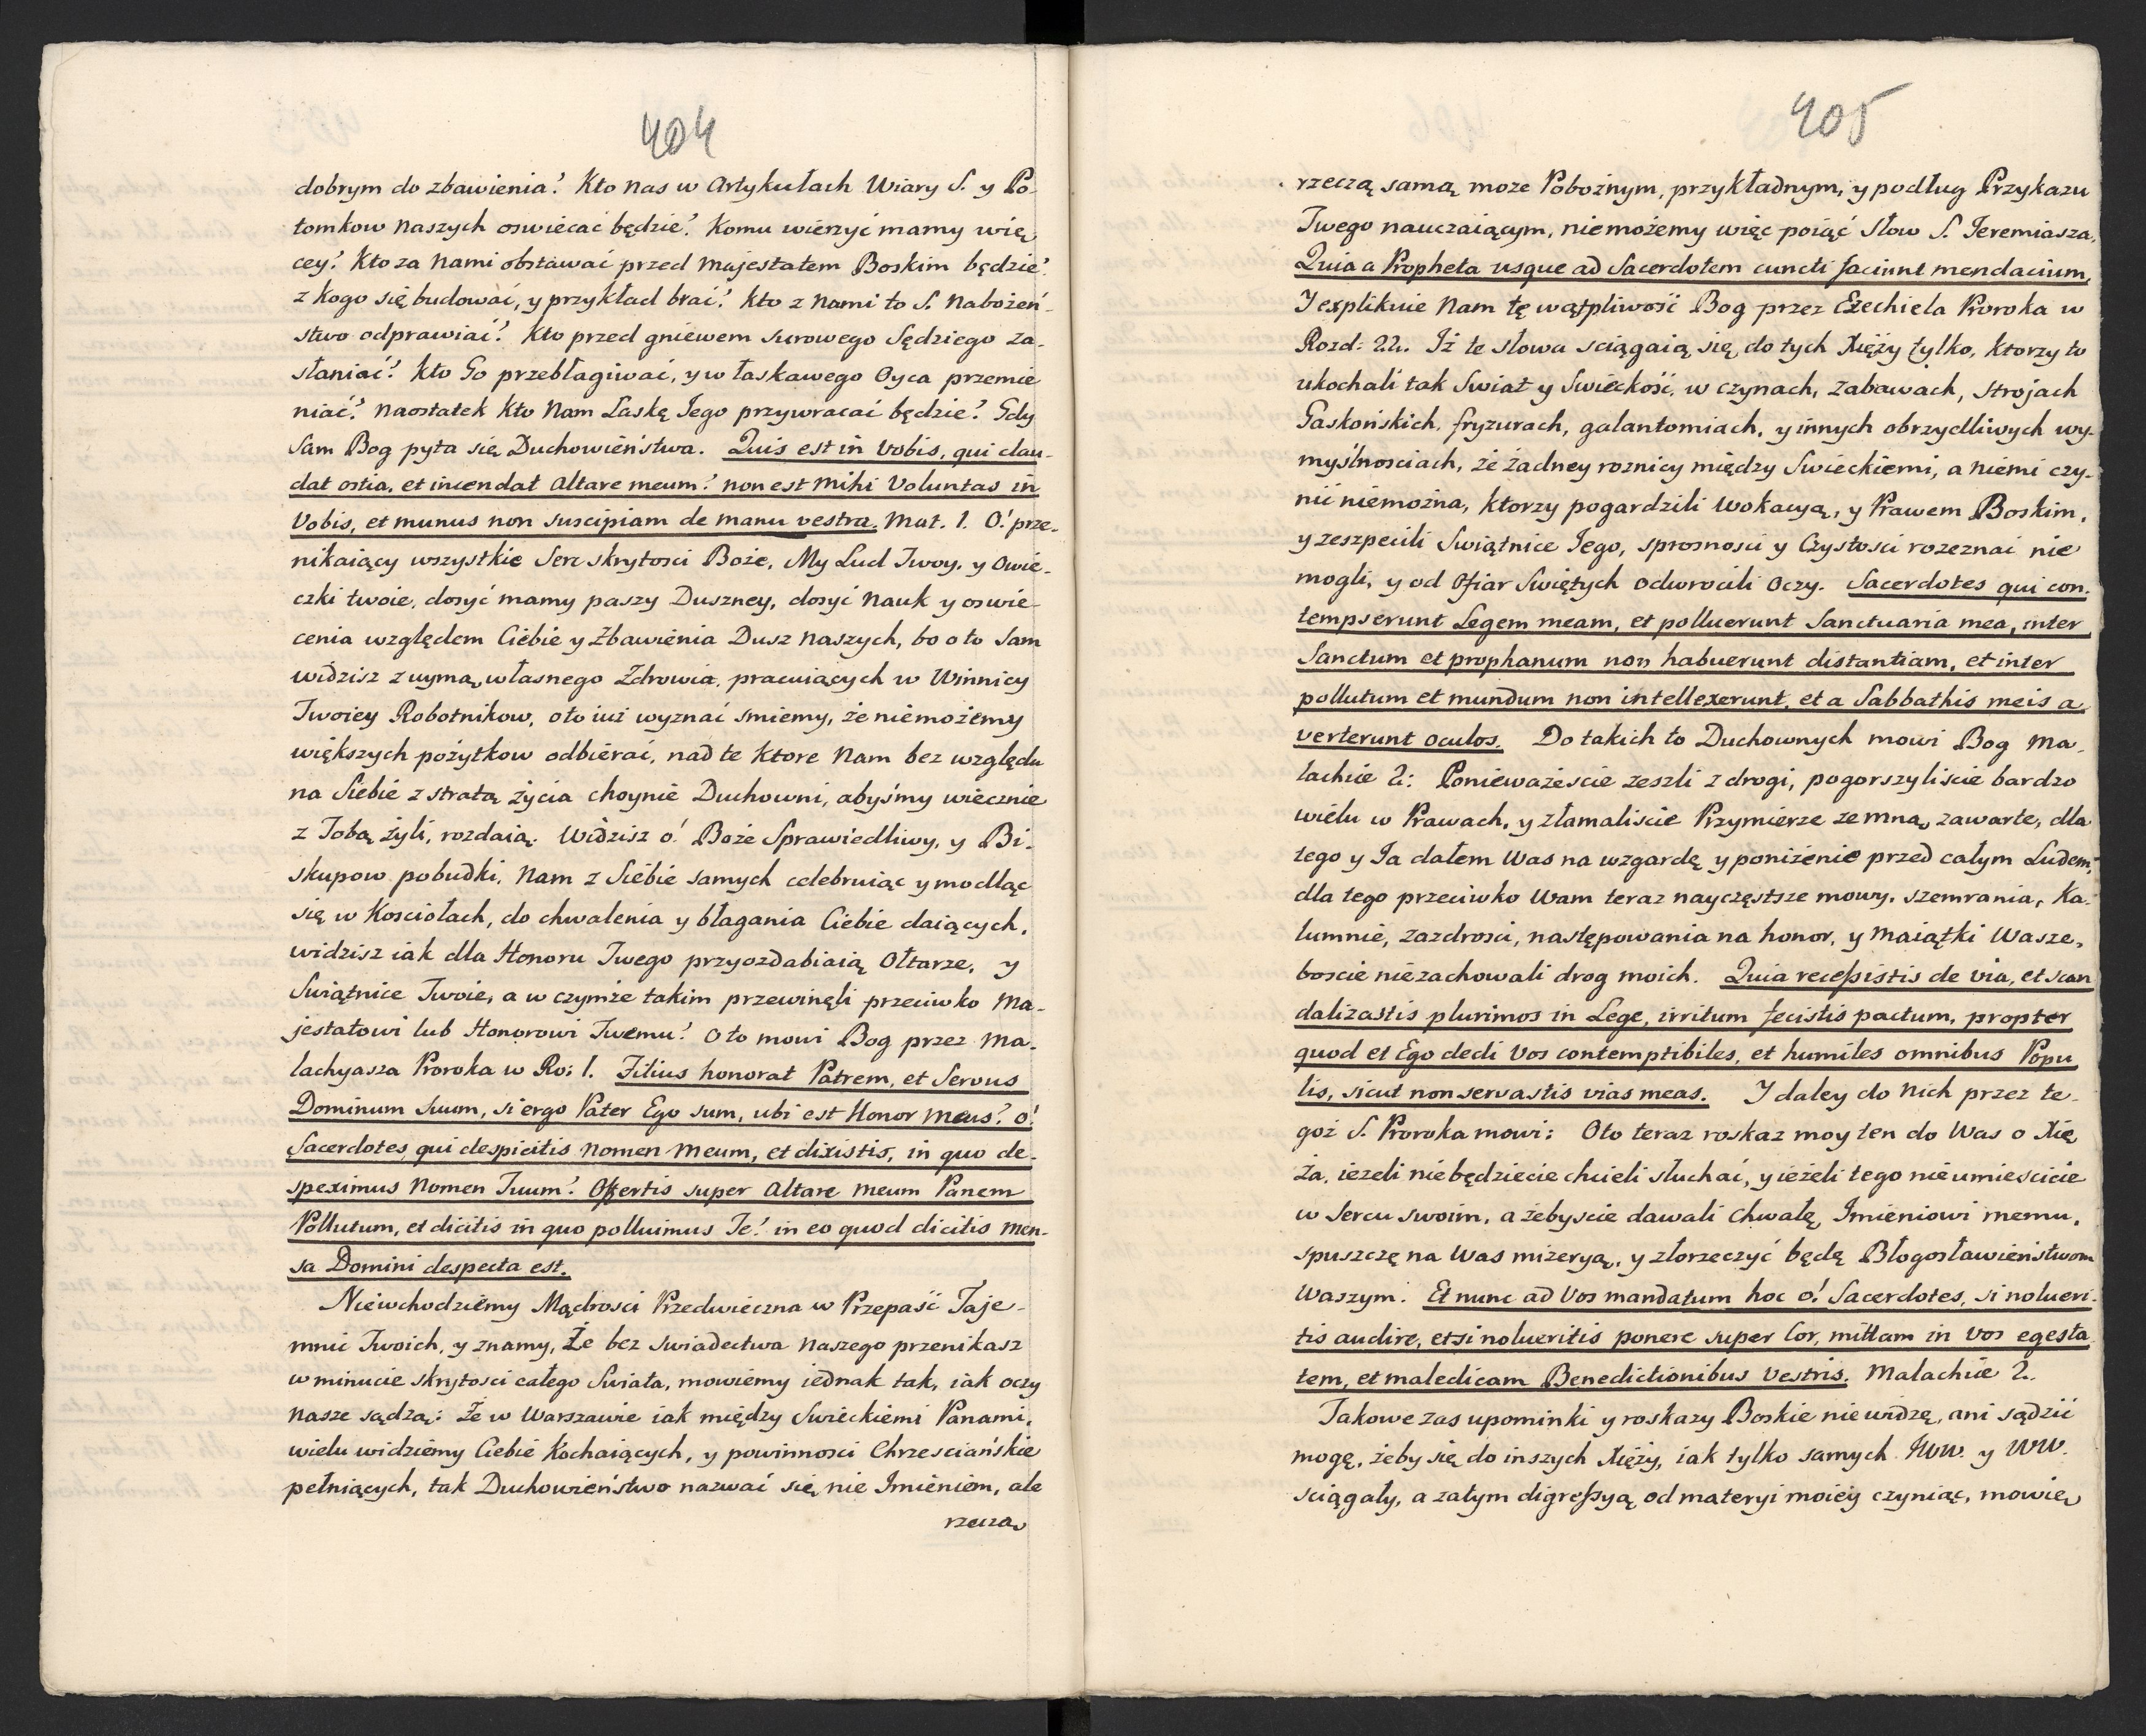 404
dobrym do zbawienia? Kto nas w Artykułach Wiary S. y Po-
tomkow naszych oswiecac będzie? Komu wierzyć mamy wię
cey? Kto za Nami obstawać przed Majestatem Boskim będzie?
z kogo się budować, y przykład brać? kto z Nami to S. Nabożeń-
stwo odprawiać? Kto przed gniewem surowego Sędziego za-
słaniać? Kto Go przebłagiwać, y w łaskawego Oyca przemie
niać? naostatek Kto Nam Łaskę Jego przywracać będzie? Gdy
Sam Bog pyta się Duchowieństwa. Quis est in Vobis, qui clau-
dat ostia, et incendat Altare meum? non est Mihi Voluntas in
Vobis, et munus non suscipiam de manu vestra. Mat. 1. O! prze-
nikaiący wszystkie Serc skrytosci Boże, My Lud Twoy, y Owie-
czki twoie, dosyć mamy paszy Duszney, dosyć Nauk y oswie-
cenia względem Ciebie y Zbawienia Dusz naszych, bo oto Sam
widzisz z uymą własnego Zdrowia, pracuiących w Winnicy
Twoiey Robotnikow, oto iuż wyznać smiemy, że niemożemy
większych pożytkow odbierać, nad te Ktore Nam bez względu
na Siebie z stratą życia choynie Duchowni, abyśmy wiecznie
z Tobą żyli, rozdaią. Widzisz o! Boże Sprawiedliwy, y Bi-
skupow pobudki, Nam z Siebie samych celebruiąc y modląc
się w Kosciołach, do chwalenia y błagania Ciebie daiących,
widzisz iak dla Honoru Twego przyozdabiaią Ołtarze, y
Swiątnice Twoie, a w czymże takim przewinęli przeciwko Ma-
jestatowi lub Honorowi Twemu? Oto mowi Bog przez Ma-
lachyasza Proroka w Ro: 1. Filius honorat Patrem, et Servus
Dominum Suum, si ergo Pater Ego sum, ubi est Honor Meus? o!
Sacerdotes, qui despicitis Nomen Meum, et dixistis, in quo de-
speximus Nomen Tuum? Offertis super Altare meum Panem
Pollutum, et dicitis in quo polluimus Te? in eo quod dicitis Men-
sa Domini despecta est.
Niewchodziemy Mądrosci Przedwieczna w Przepaść Taje-
mnic Twoich, y znamy, Że bez swiadectwa naszego przenikasz
w minucie skrytosci całego Swiata, mowiemy iednak tak, iak oczy
nasze sądzą: Że w Warszawie iak między Swieckiemi Panami,
wielu widziemy Ciebie Kochaiących, y powinnosci Chrzesciańskie
pełniących, tak Duchowieństwo nazwać się nie Imieniem, ale
rzeczą
405
rzeczą samą może Pobożnym, przykładnym, y podług Przykazu
Twego nauczaiącym, niemożemy więc poiąć Słow S. Jeremiasza,
Quia a Propheta usque ad Sacerdotem cuncti faciunt mendacium,
Y explikuie Nam tę wątpliwość Bog przez Ezechiela Proroka w
Rozd: 22. Iż te słowa sciągaią się do tych Xięży tylko, Ktorzy to
ukochali tak Swiat y Swieckość, w czynach, zabawach, strojach
Gaskońskich, fryzurach, galantomiach, y innych obrzydliwych wy-
myślnosciach, że żadney roznicy między Swieckiemi, a niemi czy-
nić niemożna, Ktorzy pogardzili Wokacyą, y Prawem Boskim,
y zeszpecili Swiątnice Jego, sprosnosci y Czystosci rozeznać nie
mogli, y od Ofiar Swiętych odwrocili Oczy. Sacerdotes qui con-
tempserunt Legem meam, et polluerunt Sanctuaria mea, inter
Sanctum et prophanum non habuerunt distantiam, et inter
pollutum et mundum non intellexerunt, et a Sabbathis meis a
verterunt oculos. Do takich to Duchownych mowi Bog Ma-
lachiæ 2: Ponieważeście zeszli z drogi, pogorszyliście bardzo
wielu w Prawach, y złamaliscie Przymierze ze mną zawarte, dla
tego y Ja dałem Was na wzgardę y poniżenie przed całym Ludem,
dla tego przeciwko Wam teraz nayczęstsze mowy, szemrania, Ka-
lumnie, zazdrosci, następowania na honor, y Maiątki Wasze,
boscie niezachowali drog moich. Quia recessistis de via, et scan
dalizastis plurimos in Lege, irritum fecistis pactum, propter
quod et Ego dedi Vos contemptibiles, et humiles omnibus Popu
lis, sicut non servastis vias meas. Y daley do Nich przez te-
goż S. Proroka mowi: Oto teraz roskaz moy ten do Was o Xię
ża, ieżeli niebędziecie chcieli słuchać, y ieżeli tego nie umiescicie
w Sercu swoim, a żebyscie dawali Chwałę Imieniowi memu,
spuszczę na Was mizeryą, y złorzeczyć będę Błogosławieństwom
Waszym. Et nunc ad Vos mandatum hoc o! Sacerdotes, si nolueri-
tis audire, et si nolueritis ponere super Cor, mittam in Vos egesta
tem, et maledicam Benedictionibus Vestris. Malachiæ 2.
Takowe zas upominki y roskazy Boskie nie widzę, ani sądzić
mogę, żeby się do inszych Xięży, iak tylko samych JWW. y WW.
sciągały, a zatym digressyą od materyi moiey czyniąc, mowię